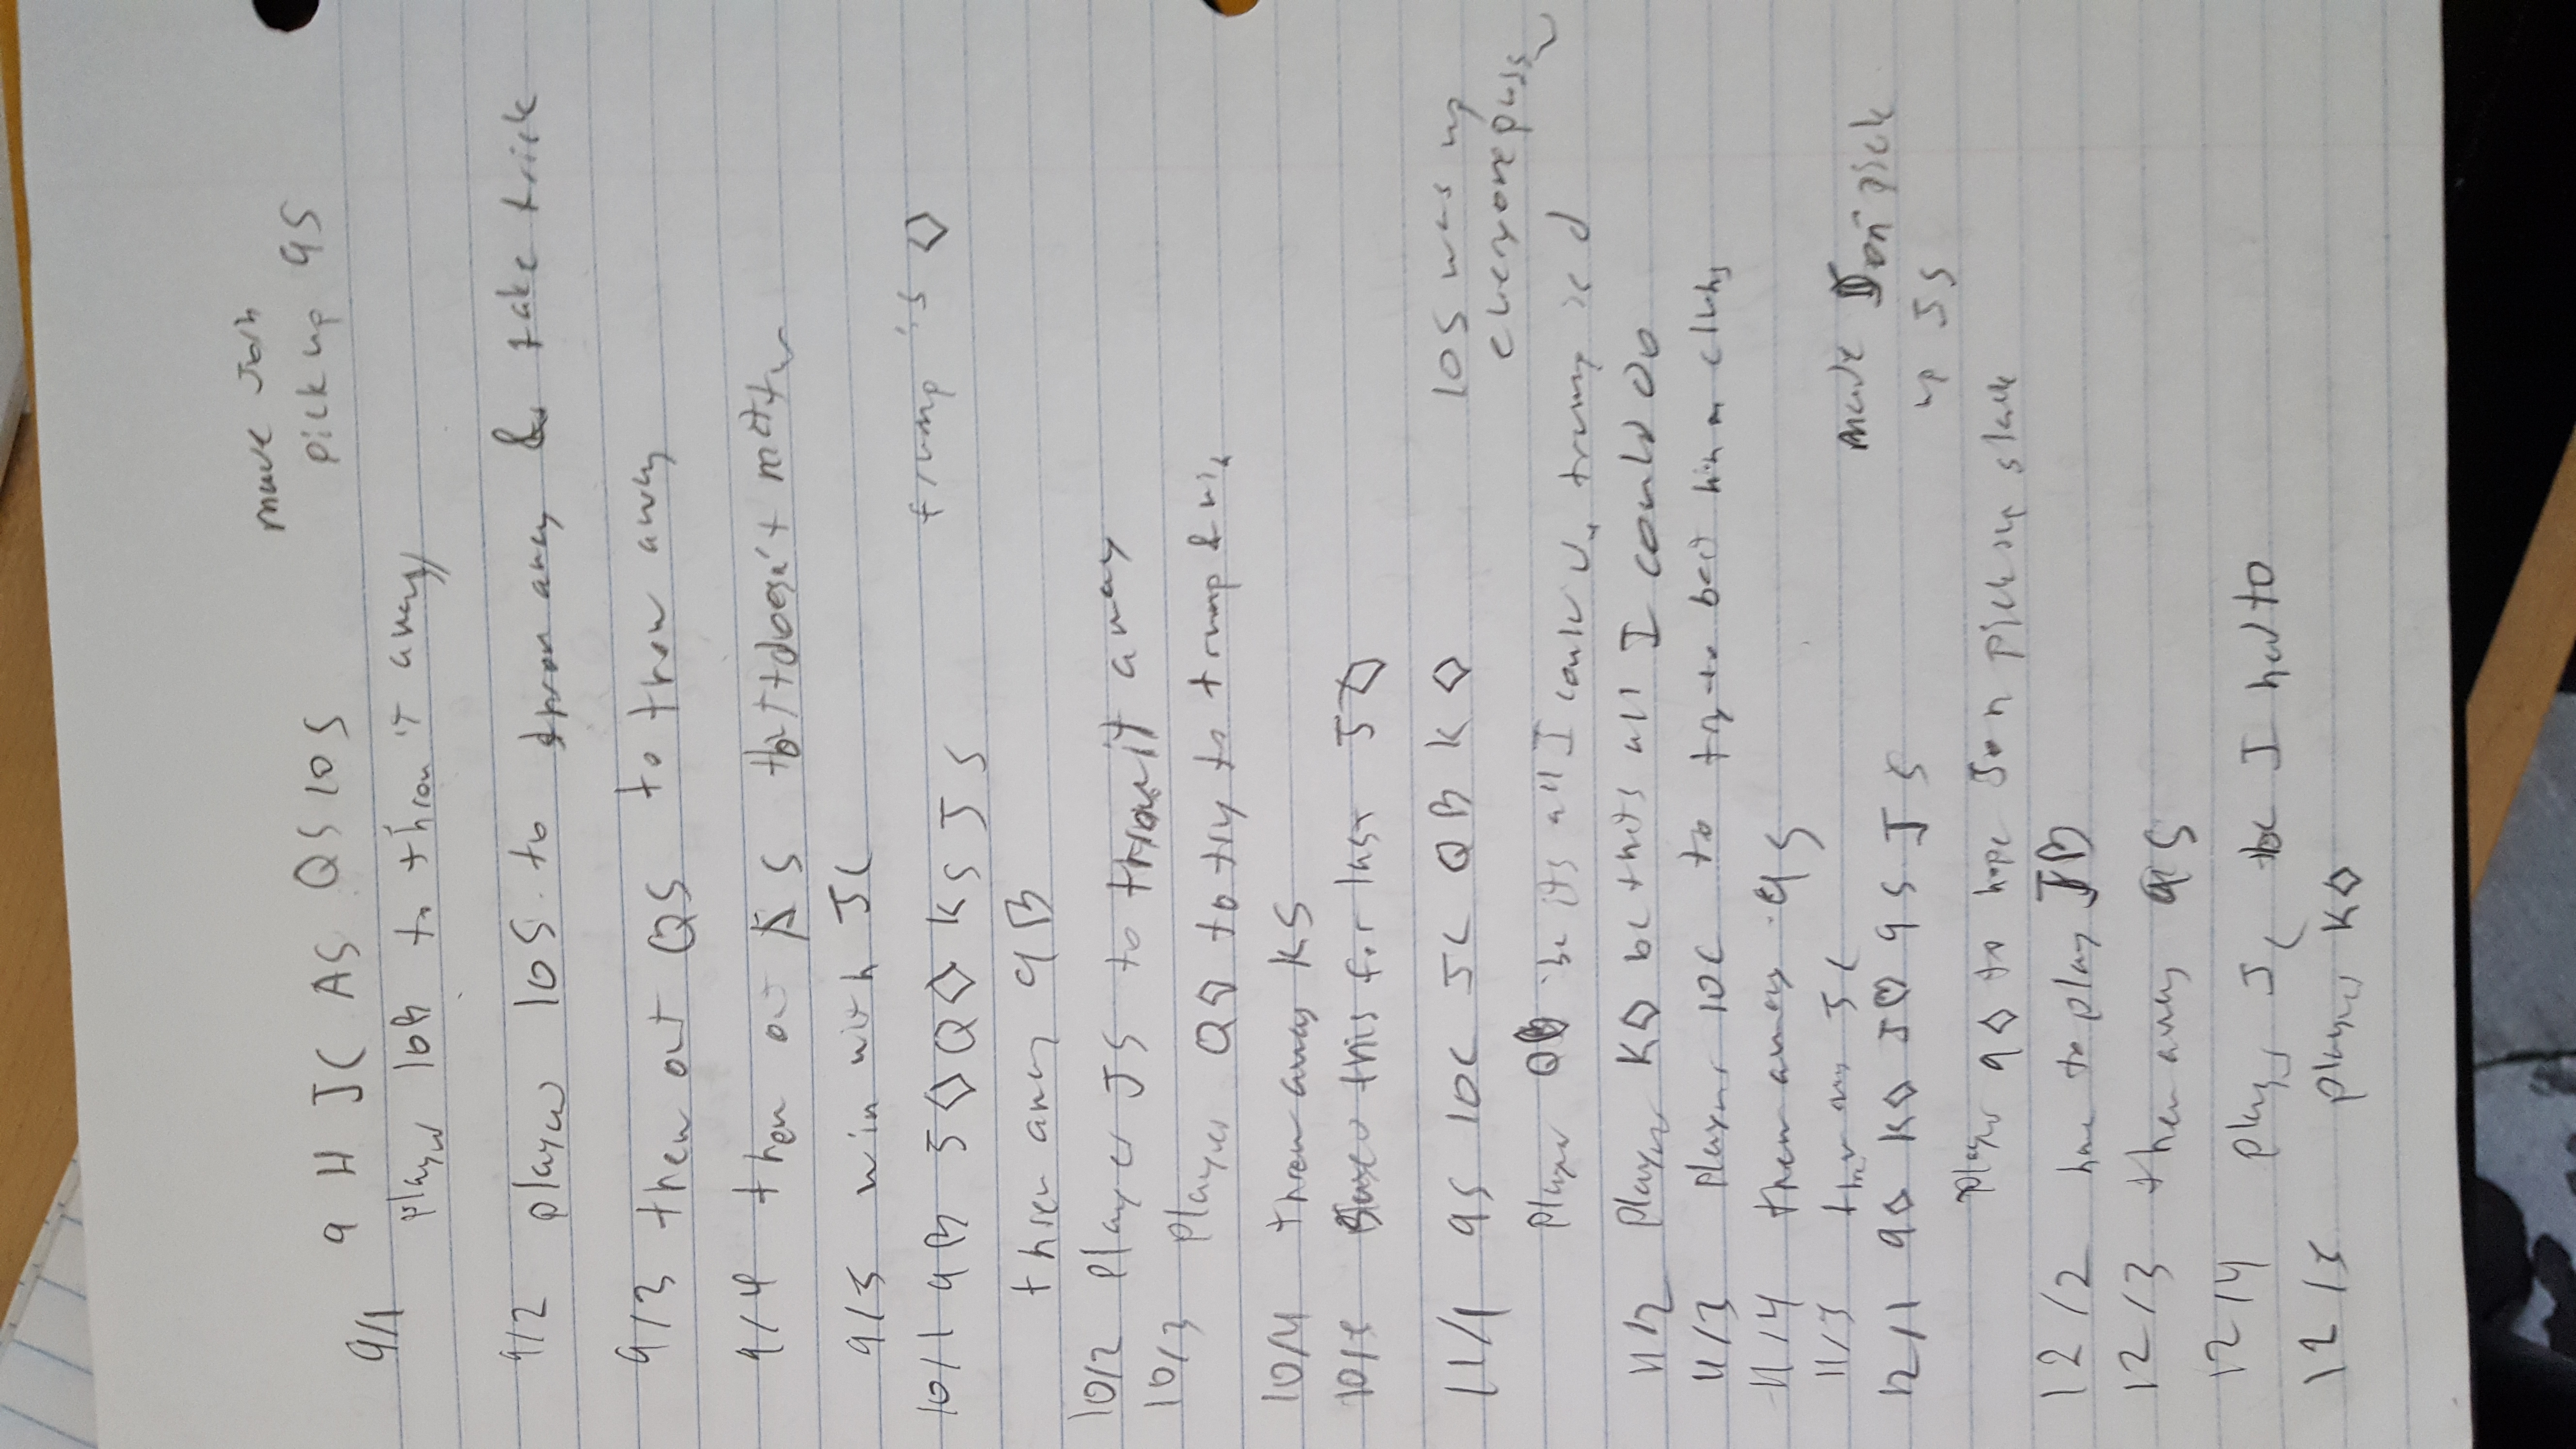 made Jon
pick up 9S
9/1 9 H JC AS QS 10S
played 10B to throw it away
9/2 played 10S to throw away & take trick
9/3 threw out QS to throw away
9/4 threw out AS bc it doesn't matter
9/5 win with JC
10/1 9B J◇ Q◇ KS JS trump is ◇
threw away 9B
10/2 Played JS to throw it away
10/3 Played Q◇ to try to trump & win
10/4 threw away KS
10/5 Saved this for last J◇
11/1 9S 10C JC QB K◇ 10S was up
everyone pass
Played QB bc its all I could do trump is d
11/2 Played K◇ bc thats all I could do
11/3 Played 10C to try to beat him on clubs
11/4 threw away 9S
11/5 threw away JC
made Jon pick
12/1 9◇ K◇ J♡ 9S JS
up JS
Played 9◇ to hope Jon picks up slack
12/2 have to play JB
12/3 threw away 9S
12/4 played JC bc I had to
12/5 played K◇